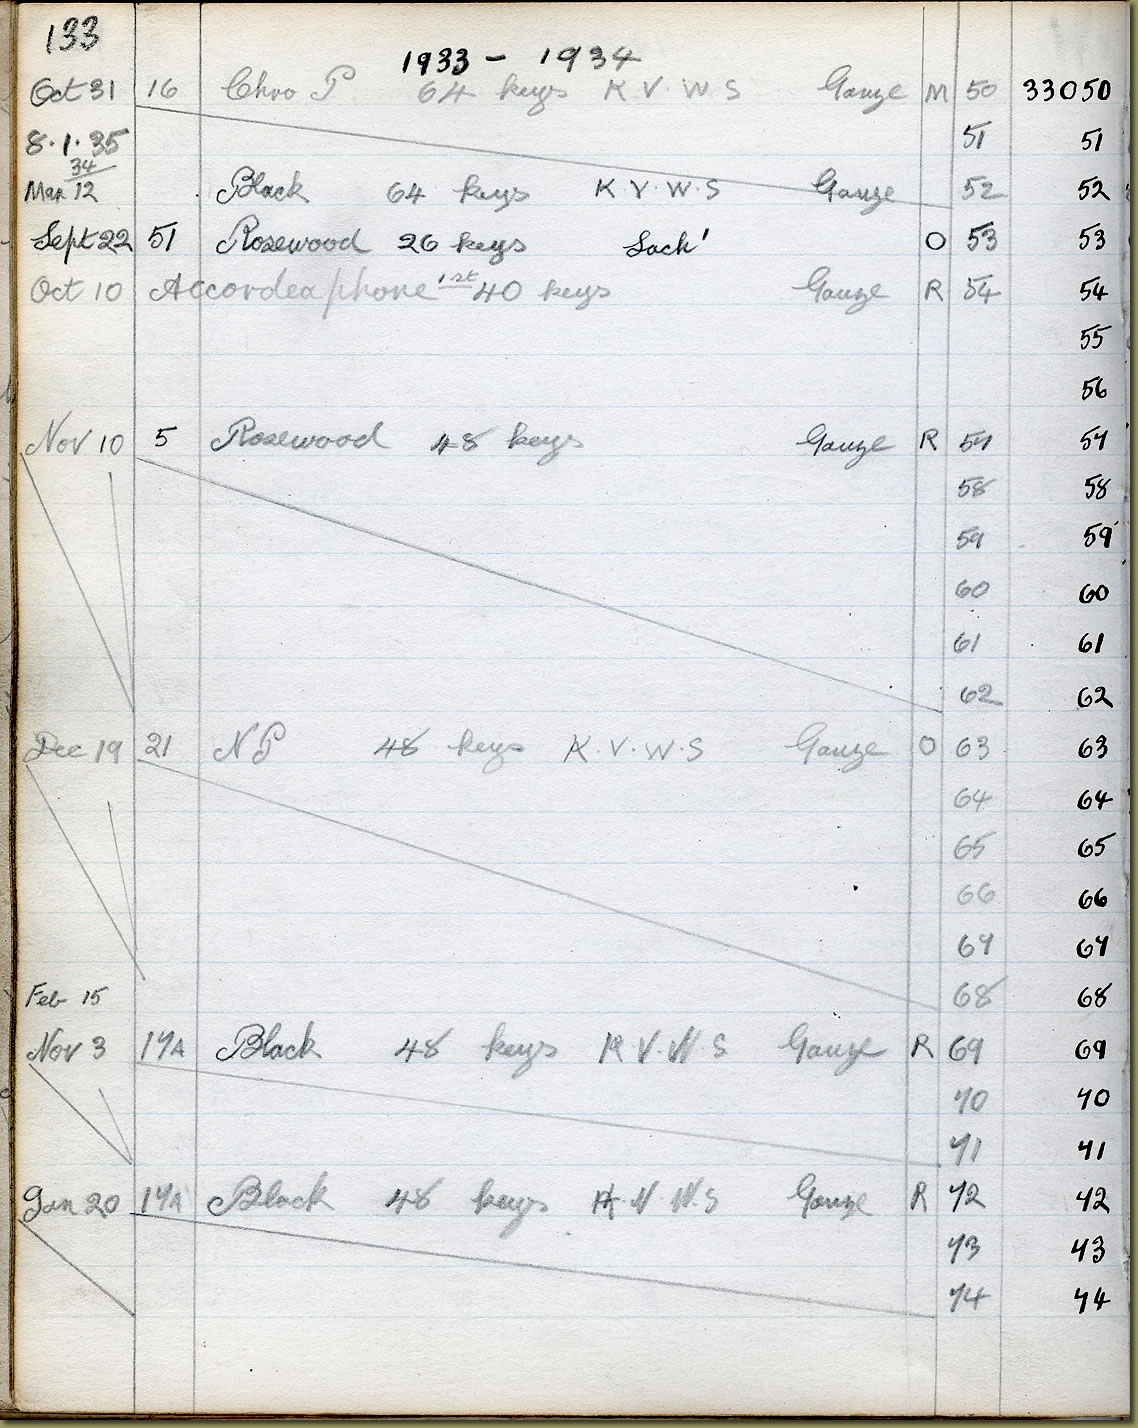 133
1933 - 1934
Oct 31 16 Chro P 64 keys K V. W S Gauze M 50 33050
8.1.35 51 51
34
Mar 12 Black 64 keys K V. W. S Gauze 52 52
Sept 22 51 Rosewood 26 keys Lach' O 53 53
Oct 10 Accordeaphone 1st 40 keys Gauze R 54 54
55
56
Nov 10 5 Rosewood 48 keys Gauze R 57 57
58 58
59 59
60 60
61 61
62 62
Dec 19 21 N P 48 keys K. V. W. S Gauze O 63 63
64 64
65 65
66 66
67 67
Feb 15 68 68
Nov 3 17A Black 48 keys K V. W. S Gauze R 69 69
70 70
71 71
Jan 20 17A Black 48 keys K. V. W. S Gauze R 72 72
73 73
74 74